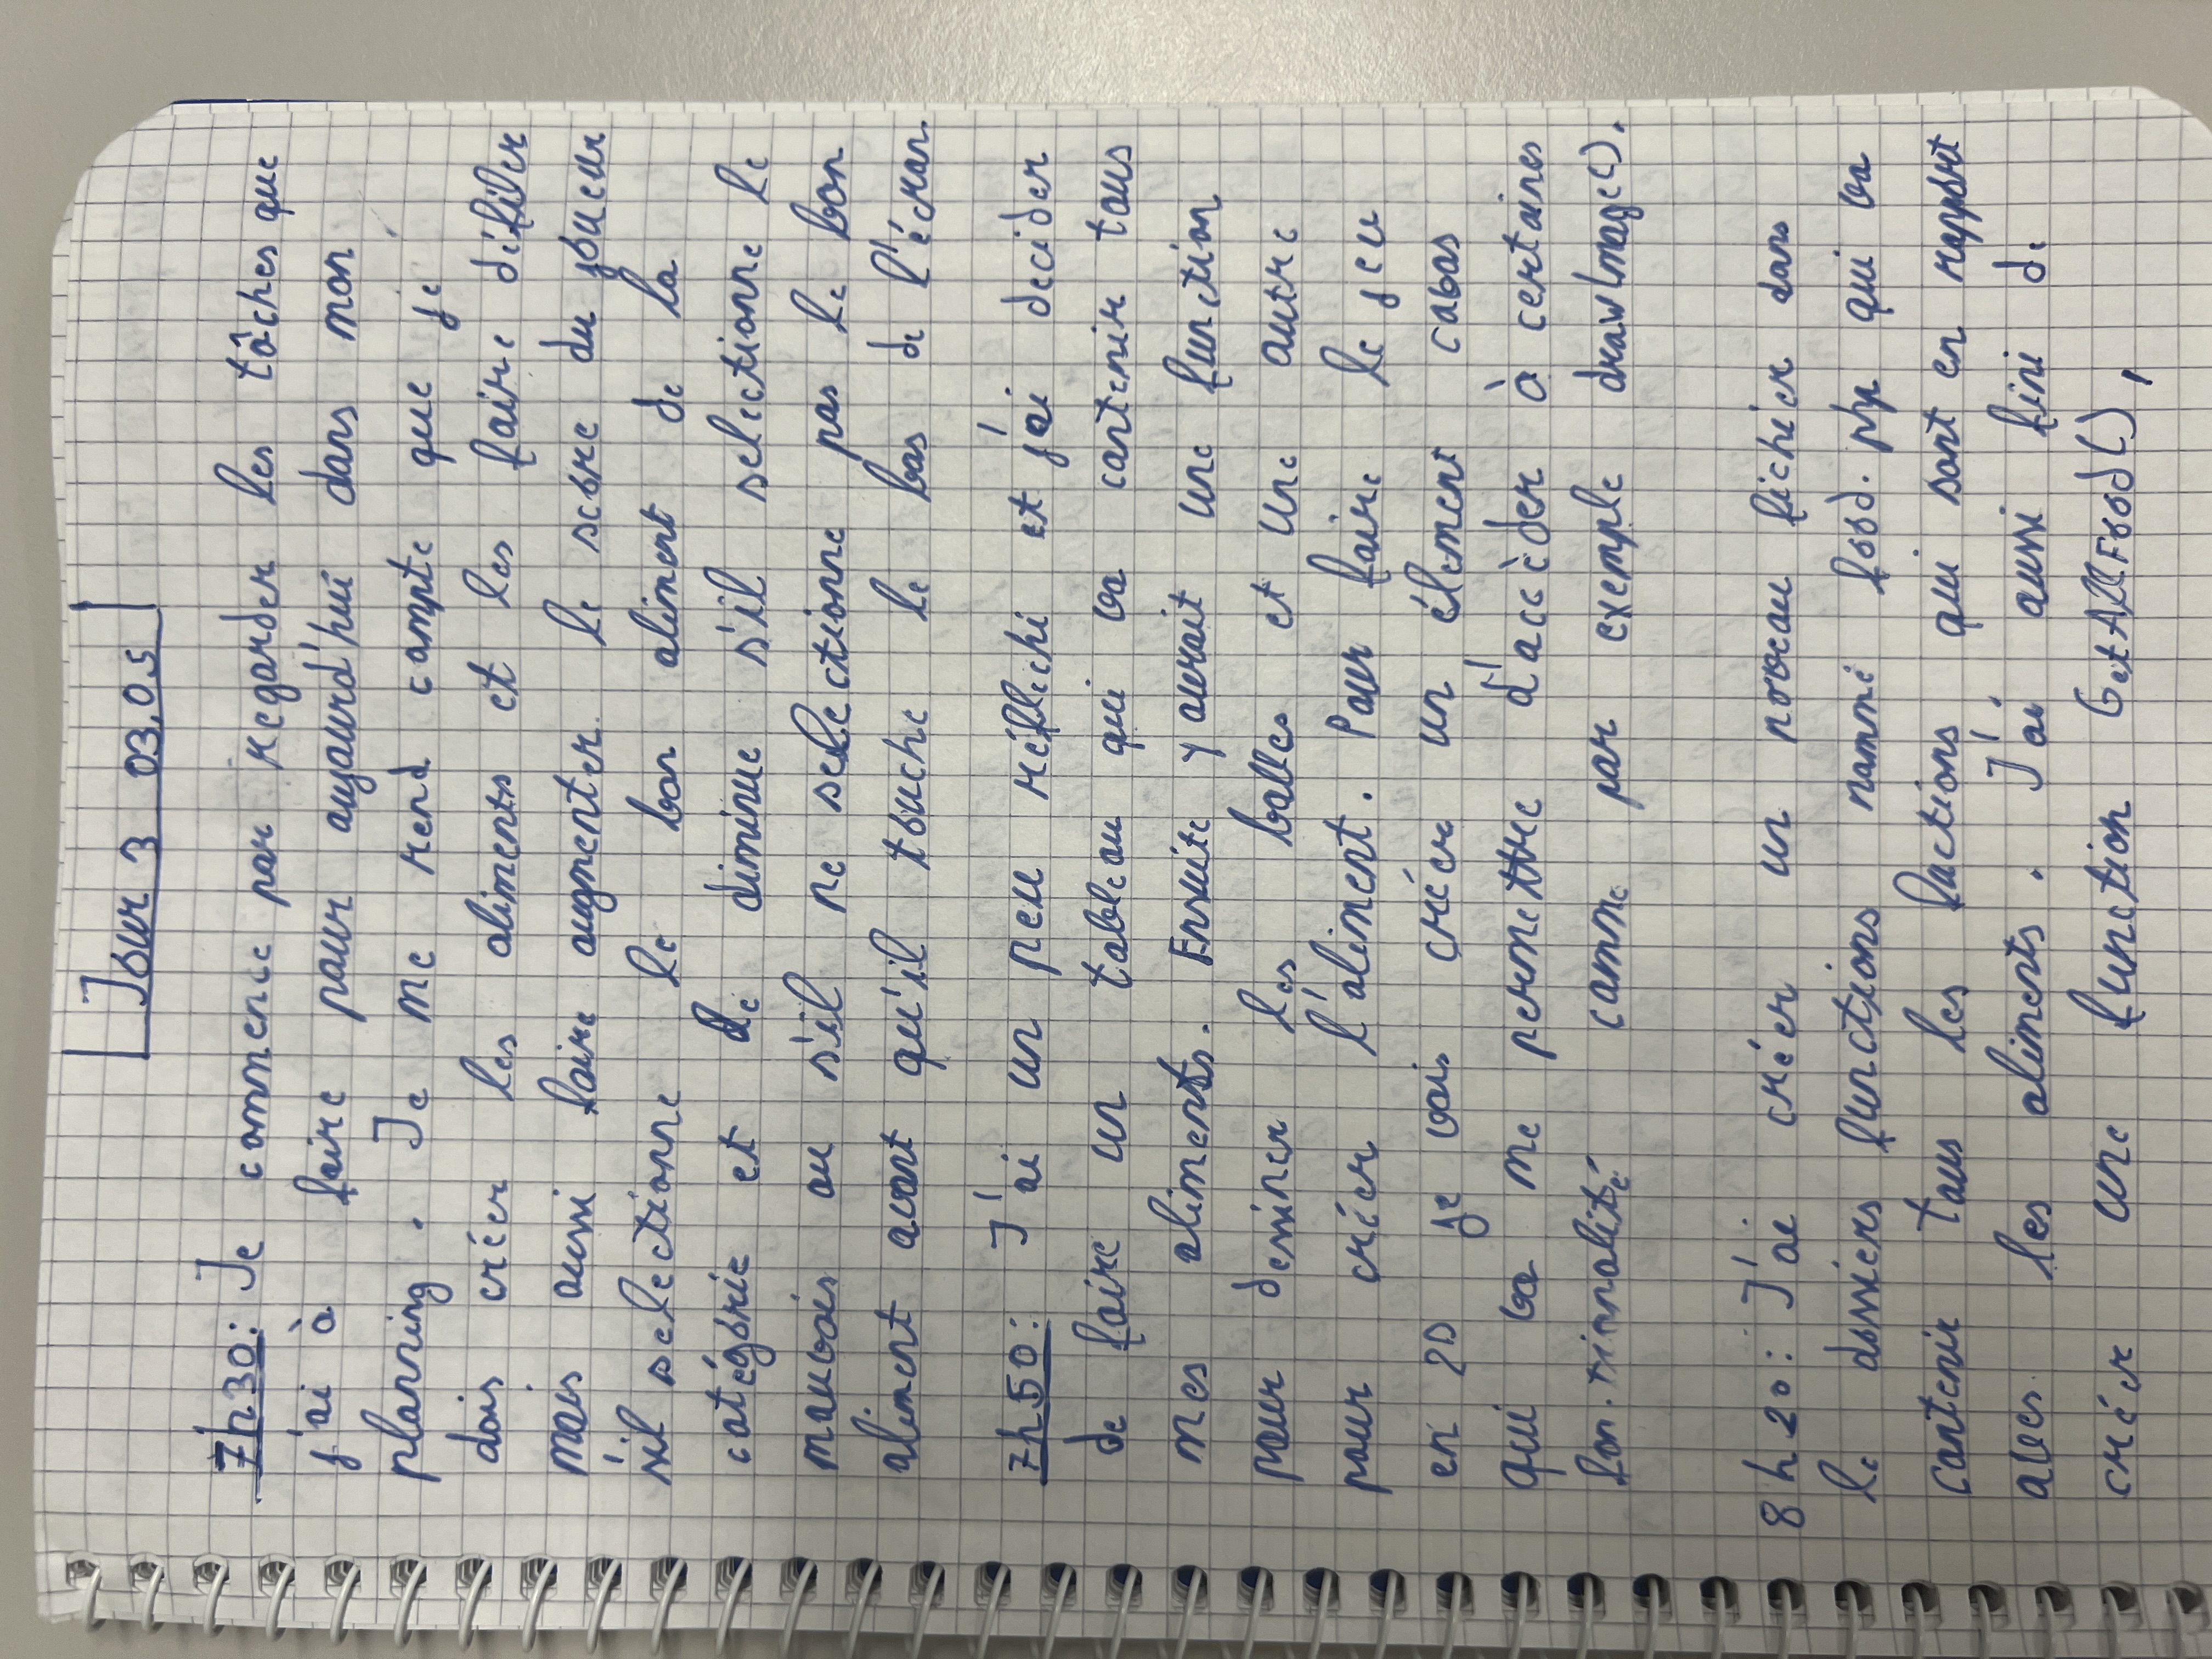 Jour 3 03.05
7h30: Je commence par regarder les tâches que
j'ai à faire pour aujourd'hui dans mon
planning. Je me rend compte que je
dois créer les aliments et les faire défiler
mais aussi faire augmenter le score du joueur
s'il selectionne le bon aliment de la
catégorie et le diminue s'il selectionne le
mauvais ou s'il ne selectionne pas le bon
aliment avant qu'il touche le bas de l'écran.
7h50: J'ai un peu réflechi et j'ai decider
de faire un tableau qui va contenir tous
mes aliments. Ensuite y aurait une function
pour dessiner les balles et une autre
pour créer l'aliment. Pour faire le jeu
en 2D je vais créer un élement cavas
qui va me permettre d'accèder à certaines
comme par exemple drawImage().
8h20: J'ai créer un noveau fichier dans
le dossiers functions nommé food.php qui va
contenir tous les fuctions qui sont en rapport
avec les aliments. J'ai aussi fini de
créer une function GetAllFood(),